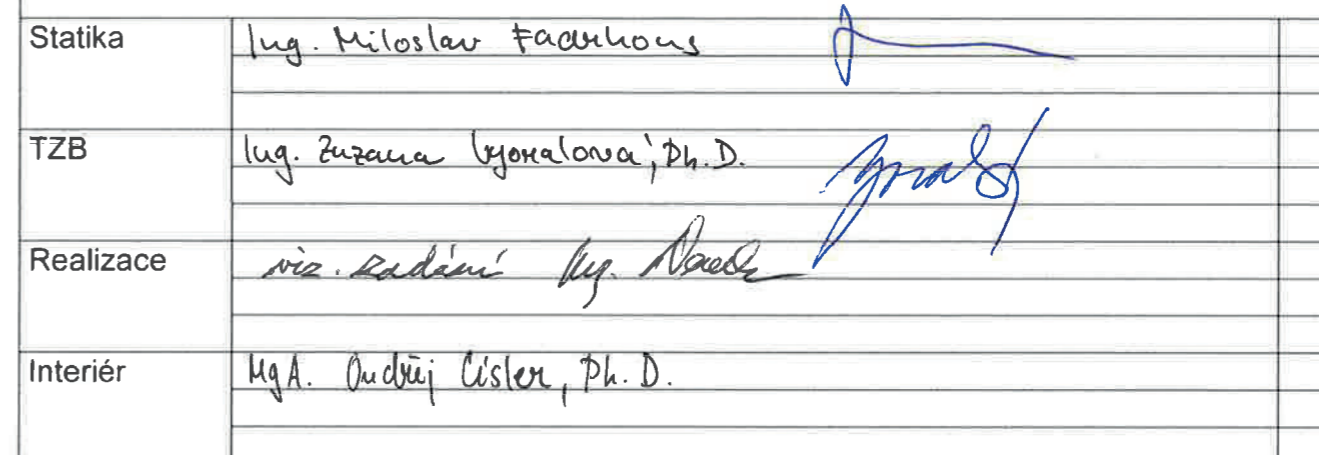 Statika Ing. Miloslav
TZB Ing. Zuzana Vyoralová, Ph.D.
Realizace viz. zadání Ing.
Interiér MgA. Ondřej Císler, Ph.D.